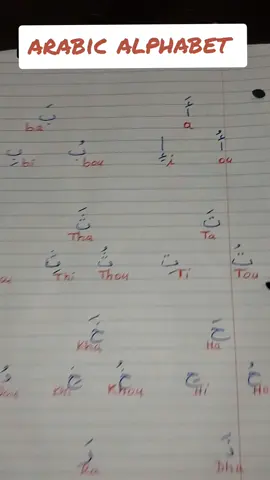 ARABIC ALPHABET
بَ أَ
ba a
بِ بُ إِ أُ
bi bou i ou
ثَ تَ
Tha Ta
ثِ ثُ تِ تُ
Thi Thou Ti Tou
خَ حَ
Kha Ha
خِ خُ حِ
Khi Khou Hi Ho